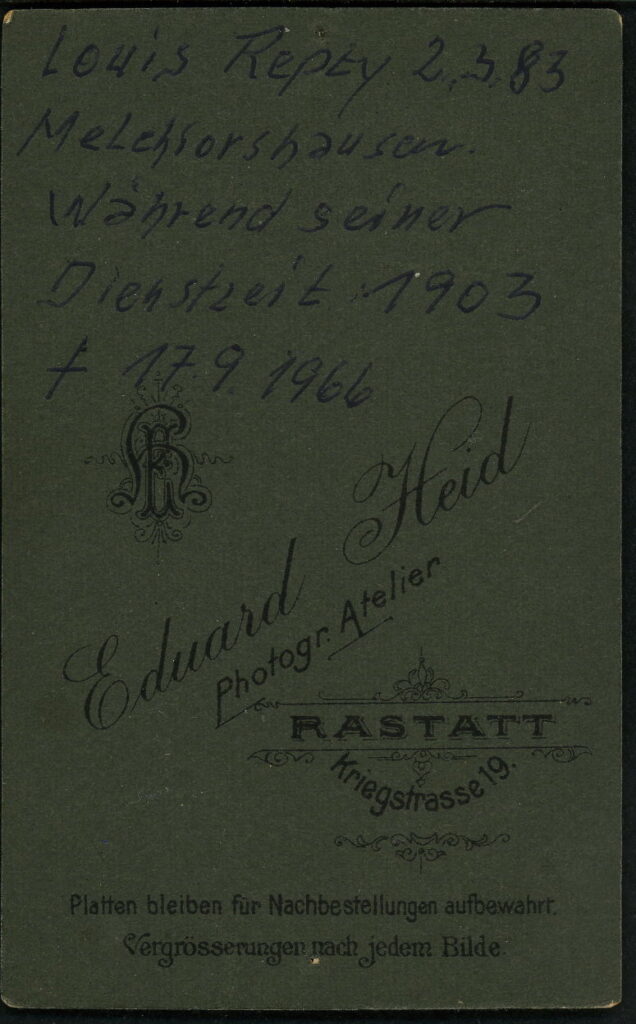 Louis Repty 2.3.83
Melchiorshausen.
Während seiner
Dienstzeit 1903
† 17.9.1966
Eduard Heid
Photogr. Atelier
RASTATT
Kriegstrasse 19.
Platten bleiben für Nachbestellungen aufbewahrt.
Vergrösserungen nach jedem Bilde.